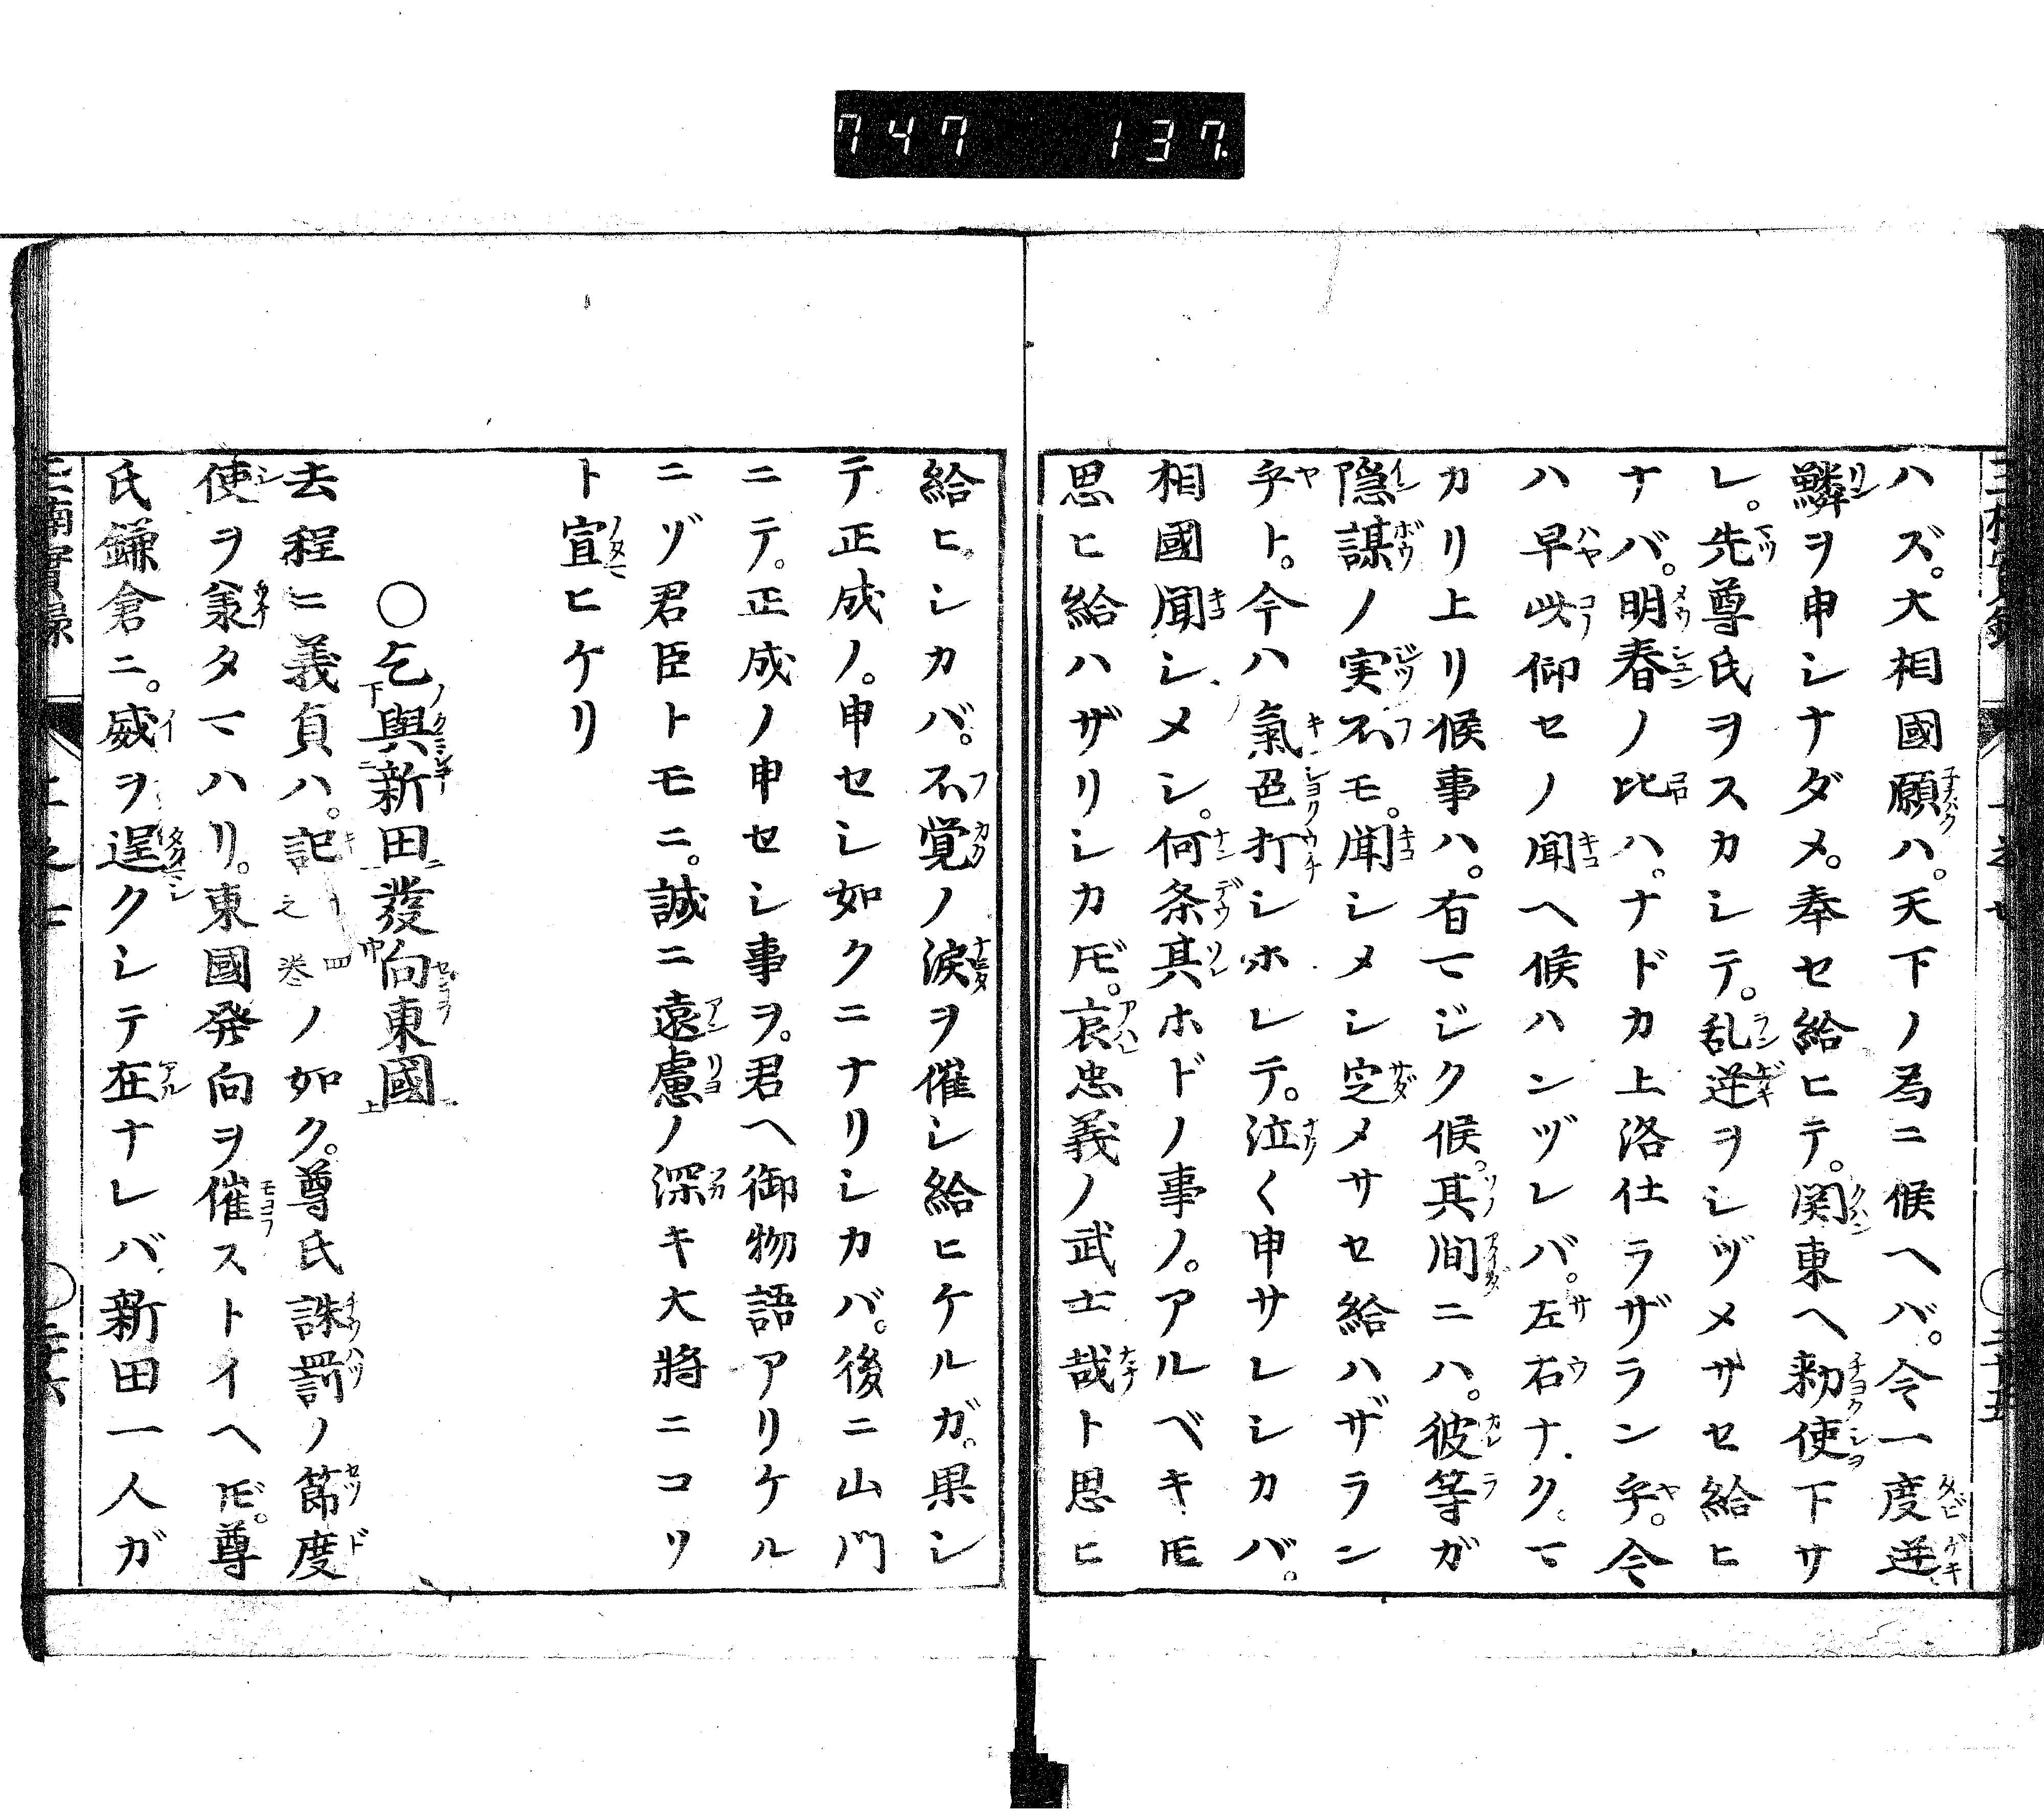 747 137.
ハズ。大相國願ハ。天下ノ為ニ候ヘバ。今一度逆
鱗ヲ申シナダメ。奉セ給ヒテ。関東ヘ勅使下サ
レ。先尊氏ヲスカシテ。乱逆ヲシヅメサセ給ヒ
ナバ。明春ノ比ハ。ナドカ上洛仕ラザラン乎。今
ハ早此仰セノ聞ヘ候ハンヅレバ。左右ナク。マ
カリ上リ候事ハ。有マジク候。其間ニハ。彼等ガ
隠謀ノ実不モ。聞シメシ定メサセ給ハザラン
乎ト。今ハ氣色打シホレテ。泣く申サレシカバ。
相國聞シメシ。何条其ホドノ事ノ。アルベキトモ
思ヒ給ハザリシカドモ。哀忠義ノ武士哉ト思ヒ
給ヒシカバ。不覚ノ涙ヲ催シ給ヒケルガ。果シ
テ正成ノ。申セシ如クニナリシカバ。後ニ山門
ニテ。正成ノ申セシ事ヲ。君ヘ御物語アリケル
ニゾ君臣トモニ。誠ニ遠慮ノ深キ大将ニコリ
ト宣ヒケリ
〇乞與新田發向東國
去程ニ義貞ハ。記之四巻ノ如ク。尊氏誅罰ノ節度
使ヲ兼タマハリ。東國発向ヲ催ストイヘドモ。尊
氏鎌倉ニ。威ヲ逞クシテ在ナレバ新田一人ガ